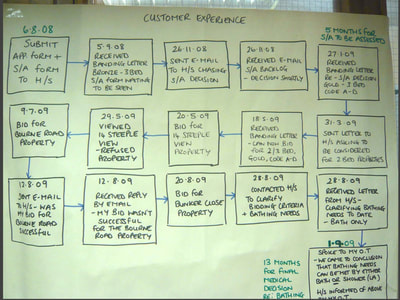 CUSTOMER EXPERIENCE
6.8.08
SUBMIT
APP FORM +
S/A FORM
TO H/S
5.9.08
RECEIVED
BANDING LETTER
BRONZE - 3 BED
S/A FORM WAITING
TO BE SEEN
26.11.08
SENT E-MAIL
TO H/S CHASING
S/A DECISION
26.11.08
RECEIVED E-MAIL
S/A BACKLOG
- DECISION SHORTLY
5 MONTHS FOR
S/A TO BE ASSESSED
27.1.09
RECEIVED
BANDING LETTER
RE: S/A DECISION
GOLD - 3 BED
CODE A-D
31.3.09
SENT LETTER TO
H/S ASKING TO
BE CONSIDERED
FOR 2 BED PROPERTIES
18.5.09
RECEIVED
BANDING LETTER
- CAN NOW BID
FOR 2/3 BED,
GOLD, CODE A-D
20.5.09
BID FOR
14 STEEPLE
VIEW
PROPERTY
29.5.09
VIEWED
14 STEEPLE
VIEW
- REFUSED
PROPERTY
9.7.09
BID FOR
BOURNE ROAD
PROPERTY
12.8.09
SENT E-MAIL
TO H/S - WAS
MY BID FOR
BOURNE ROAD
SUCCESSFUL
12.8.09
RECEIVED REPLY
BY EMAIL
- MY BID WASN'T
SUCCESSFUL
FOR THE BOURNE
ROAD PROPERTY
20.8.09
BID FOR
BUNKER CLOSE
PROPERTY
28.8.09
CONTACTED H/S
TO CLARIFY
BIDDING CRITERIA
+ BATHING NEEDS
28.8.09
RECEIVED LETTER
FROM H/S -
CLARIFYING BATHING
NEEDS TO DATE
- BATH ONLY
13 MONTHS
FOR FINAL
MEDICAL
DECISION
RE: BATHING
1.9.09
SPOKE TO MY O.T
- WE CAME TO CONCLUSION
THAT BATHING NEEDS
CAN BE MET BY EITHER
BATH OR SHOWER (LA)
H/S INFORMED OF ABOVE